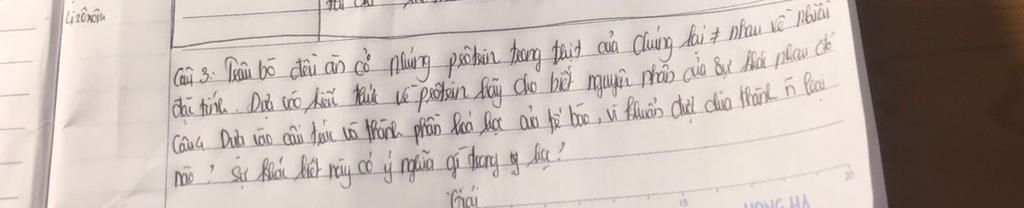 Lizôxôm
Câu 3: Trâu bò đều ăn cỏ nhưng prôtêin trong thịt của chúng lại ≠ nhau về nhiều
đặc tính. Dựa vào kiến thức về prôtêin hãy cho biết nguyên nhân của sự khác nhau đó
Câu 4 Dựa vào cấu trúc và thành phần hoá học của tế bào, vi khuẩn được chia thành n loại
nào? Sự khác biệt này có ý nghĩa gì trong y học?
Giải
15
20
HONG HA